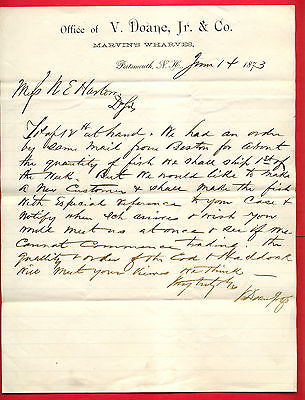 Office of V. Doane, Jr. & Co.
MARVIN'S WHARVES,
Portsmouth, N.H. June 14 1873
Mess N E Harlow
D Sir
at hand. We had an order
by same mail from Boston for about
the quantity of fish we shall ship 1st of
the Week. But we would like to make
a New Customer & shall make the fish
with especial reference to your Case &
Notify when Sch arrives & wish you
would meet us at once & see if we
Cannot Commence trading. The
quality & order of the Cod & Haddock
will meet your views we think
V Doane Jr & Co